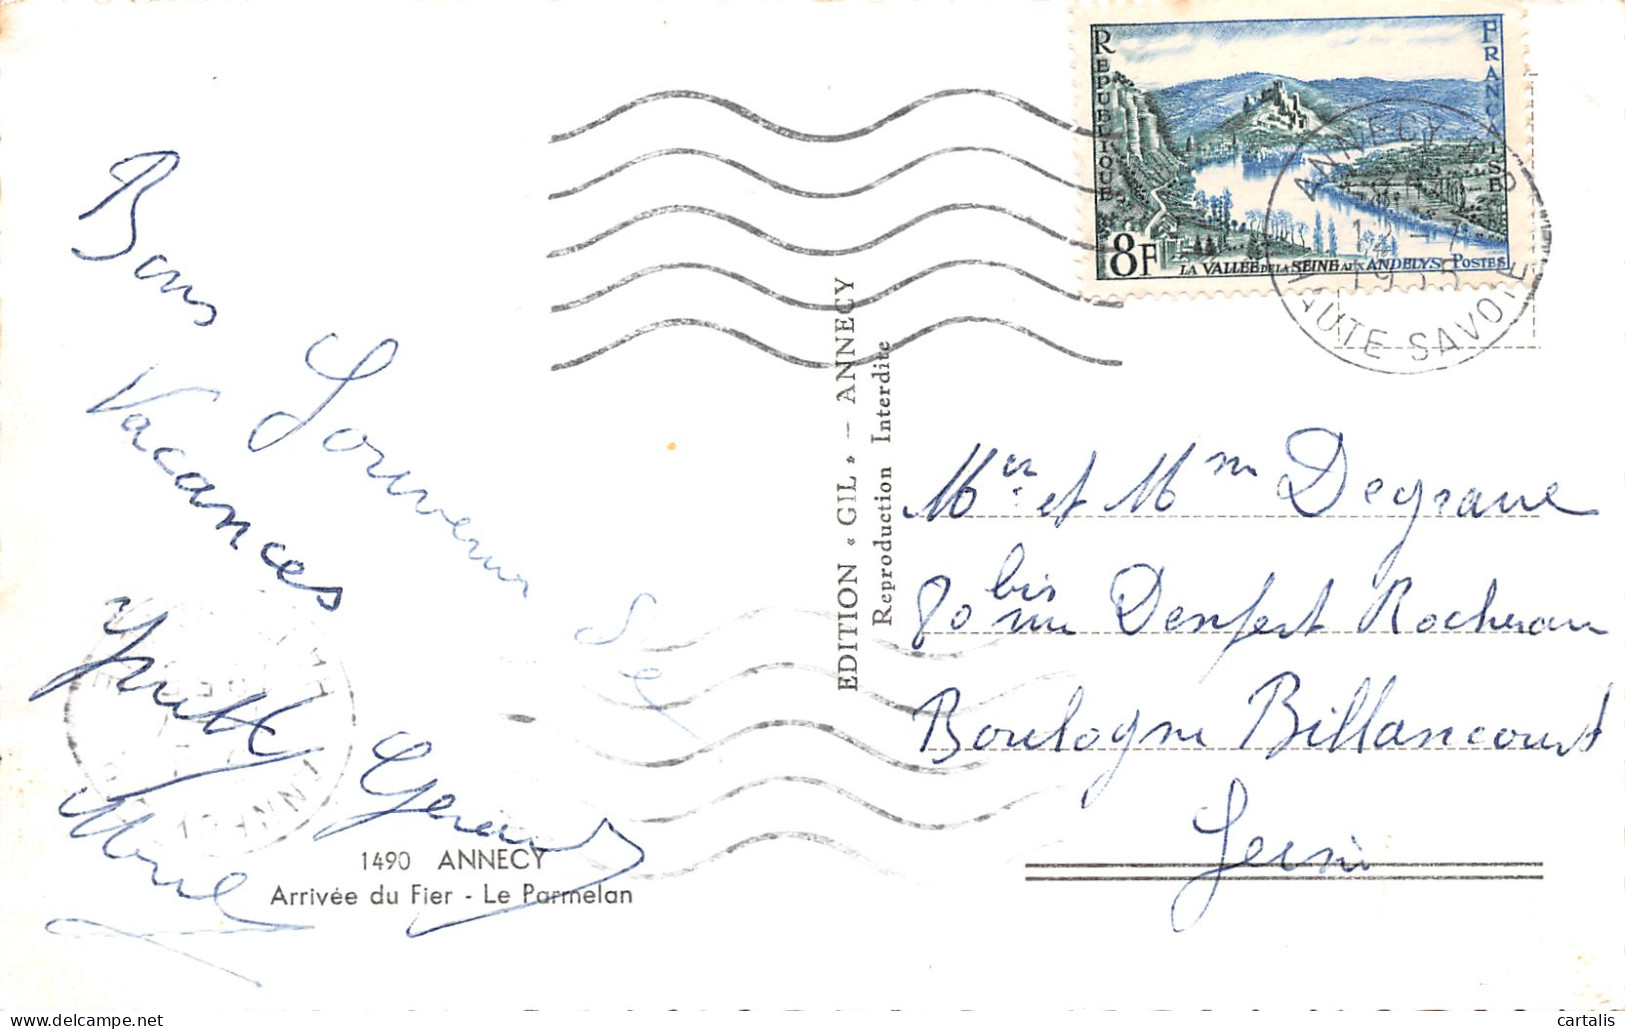 RÉPUBLIQUE FRANÇAISE
8F
LA VALLÉE DE LA SEINE AUX ANDELYS POSTES
ANNECY
12 - 7
1955
HAUTE-SAVOIE
Bons Souvenirs de
Vacances
Gérard
EDITION « GIL » – ANNECY
Reproduction Interdite
Mer et Mm Degrave
80 bis rue Denfert Rochereau
Boulogne Billancourt
Seine
1490 ANNECY
Arrivée du Fier - Le Parmelan
delcampe.net
cartalis